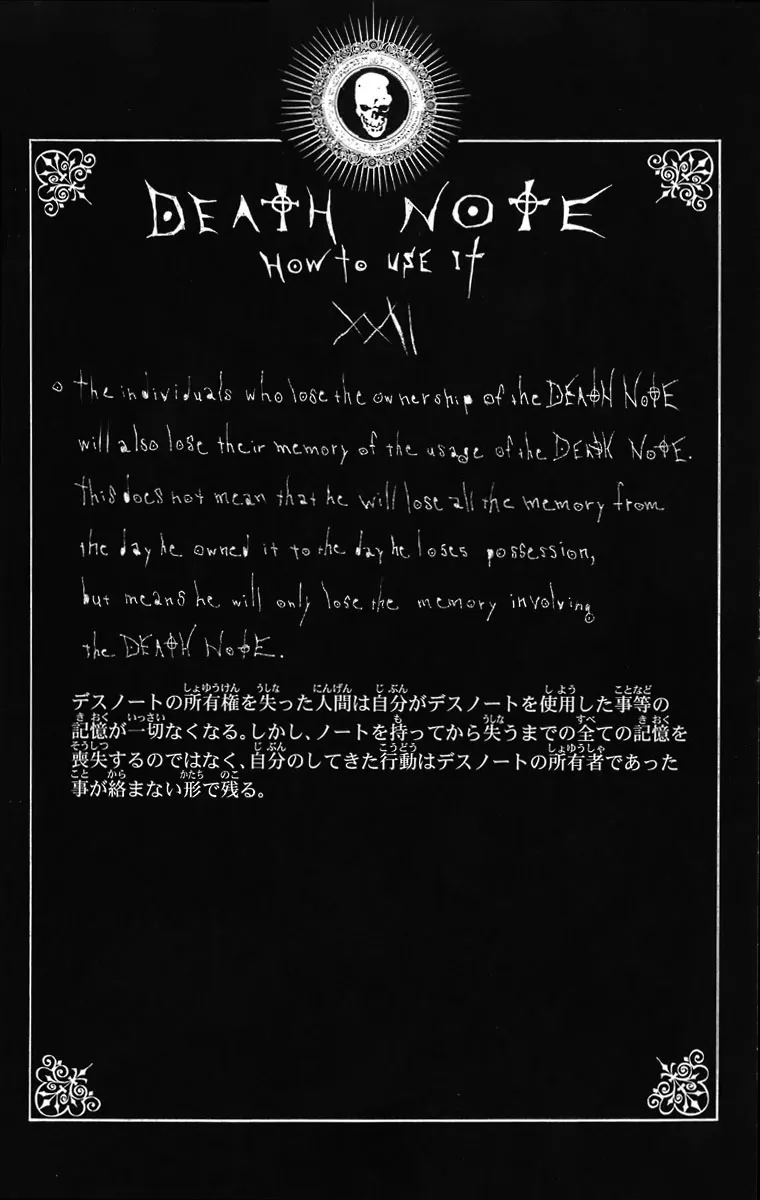 DEATH NOTE
HOW to USE It
XXII
○ the individuals who lose the ownership of the DEATH NOTE
will also lose their memory of the usage of the DEATH NOTE.
this does not mean that he will lose all the memory from
the day he owned it to the day he loses possession,
but means he will only lose the memory involving
the DEATH NOTE.
しょゆうけん うしな にんげん じ ぶん し よう ことなど
デスノートの所有権を失った人間は自分がデスノートを使用した事等の
き おく いっさい も うしな すべ き おく
記憶が一切なくなる。しかし、ノートを持ってから失うまでの全ての記憶を
そうしつ じ ぶん こうどう しょゆうしゃ
喪失するのではなく、自分のしてきた行動はデスノートの所有者であった
こと から かたち のこ
事が絡まない形で残る。